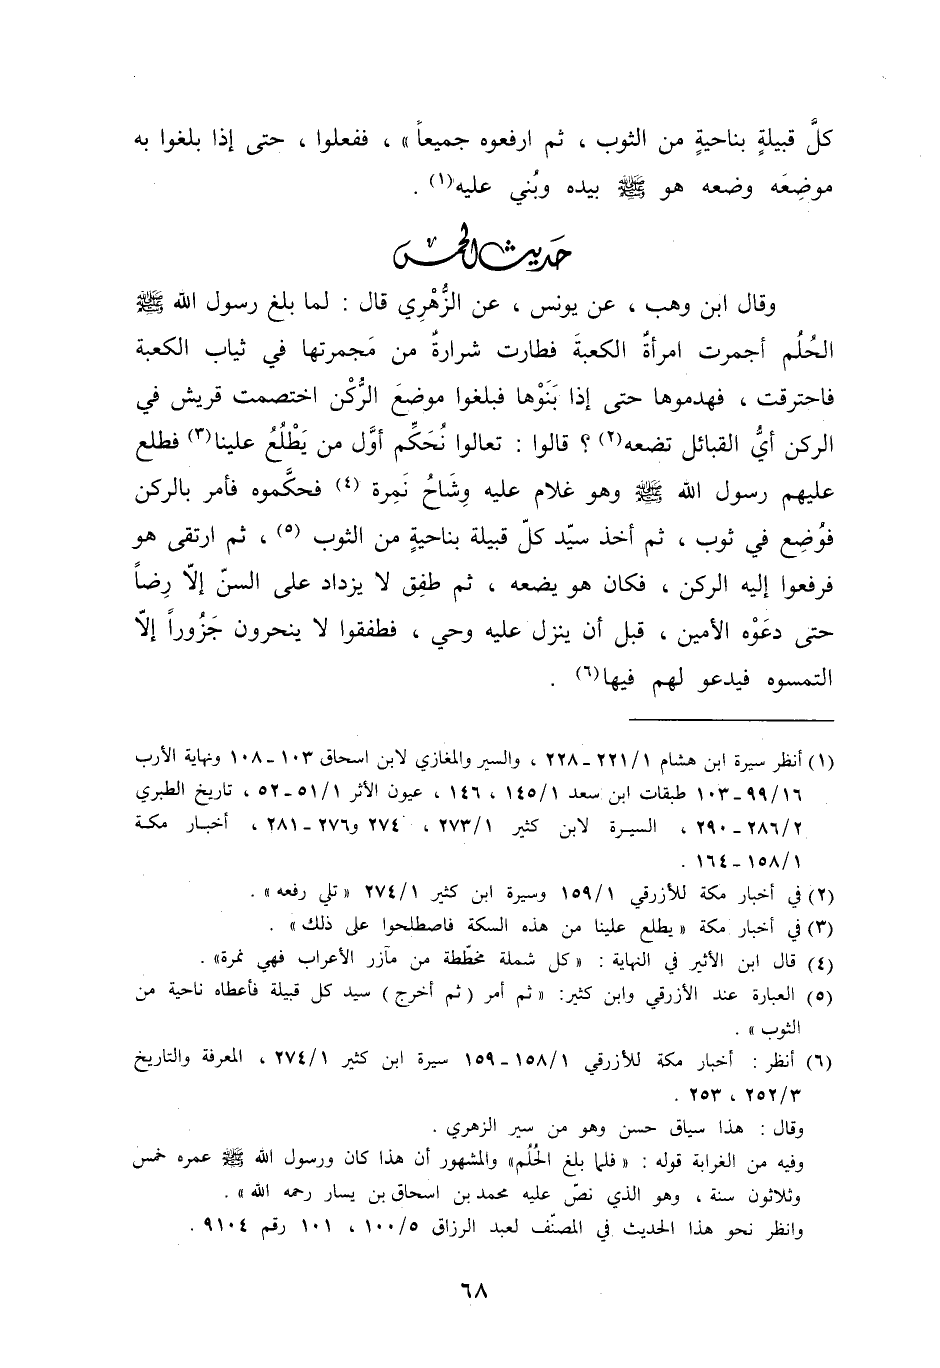 كلَّ قبيلةٍ بناحيةٍ من الثوب ، ثم ارفعوه جميعاً » ، ففعلوا ، حتى إذا بلغوا به
موضِعَه وضعه هو ﷺ بيده وبُني عليه(١) .
حَديث الحُمس
وقال ابن وهب ، عن يونس ، عن الزُّهْرِي قال : لما بلغ رسول الله ﷺ
الحُلُم أجمرت امرأةٌ الكعبةَ فطارت شرارةٌ من مَجمرتها في ثياب الكعبة
فاحترقت ، فهدموها حتى إذا بَنَوْها فبلغوا موضعَ الرُّكْن اختصمت قريش في
الركن أيُّ القبائل تضعه(٢) ؟ قالوا : تعالوا نُحَكِّم أوَّل من يَطْلُعُ علينا(٣) فطلع
عليهم رسول الله ﷺ وهو غلام عليه وِشَاحُ نَمِرة (٤) فحكَّموه فأمر بالركن
فوُضِع في ثوب ، ثم أخذ سيّد كلّ قبيلة بناحيةٍ من الثوب (٥) ، ثم ارتقى هو
فرفعوا إليه الركن ، فكان هو يضعه ، ثم طفِق لا يزداد على السنّ إلّا رِضاً
حتى دعَوْه الأمين ، قبل أن ينزل عليه وحي ، فطفقوا لا ينحرون جَزُوراً إلّا
التمسوه فيدعو لهم فيها(٦) .
(١) أنظر سيرة ابن هشام ٢٢١/١ ـ ٢٢٨ ، والسير والمغازي لابن اسحاق ١٠٣ ـ ١٠٨ ونهاية الأرب
٩٩/١٦ ـ ١٠٣ طبقات ابن سعد ١٤٥/١ ، ١٤٦ ، عيون الأثر ٥١/١ ـ ٥٢ ، تاريخ الطبري
٢٨٦/٢ ـ ٢٩٠ ، السيرة لابن كثير ٢٧٣/١ ، ٢٧٤ و٢٧٦ ـ ٢٨١ ، أخبار مكة
١٥٨/١ ـ ١٦٤ .
(٢) في أخبار مكة للأزرقي ١٥٩/١ وسيرة ابن كثير ٢٧٤/١ « تلي رفعه » .
(٣) في أخبار مكة « يطلع علينا من هذه السكة فاصطلحوا على ذلك » .
(٤) قال ابن الأثير في النهاية : « كل شملة مخطّطة من مآزر الأعراب فهي نمرة» .
(٥) العبارة عند الأزرقي وابن كثير: « ثم أمر ( ثم أخرج ) سيد كل قبيلة فأعطاه ناحية من
الثوب » .
(٦) أنظر : أخبار مكة للأزرقي ١٥٨/١ ـ ١٥٩ سيرة ابن كثير ٢٧٤/١ ، المعرفة والتاريخ
٢٥٢/٣ ، ٢٥٣ .
وقال : هذا سياق حسن وهو من سير الزهري .
وفيه من الغرابة قوله : « فلما بلغ الحُلُم» والمشهور أن هذا كان ورسول الله ﷺ عمره خمس
وثلاثون سنة ، وهو الذي نصّ عليه محمد بن اسحاق بن يسار رحمه الله » .
وانظر نحو هذا الحديث في المصنّف لعبد الرزاق ١٠٠/٥ ، ١٠١ رقم ٩١٠٤ .
٦٨